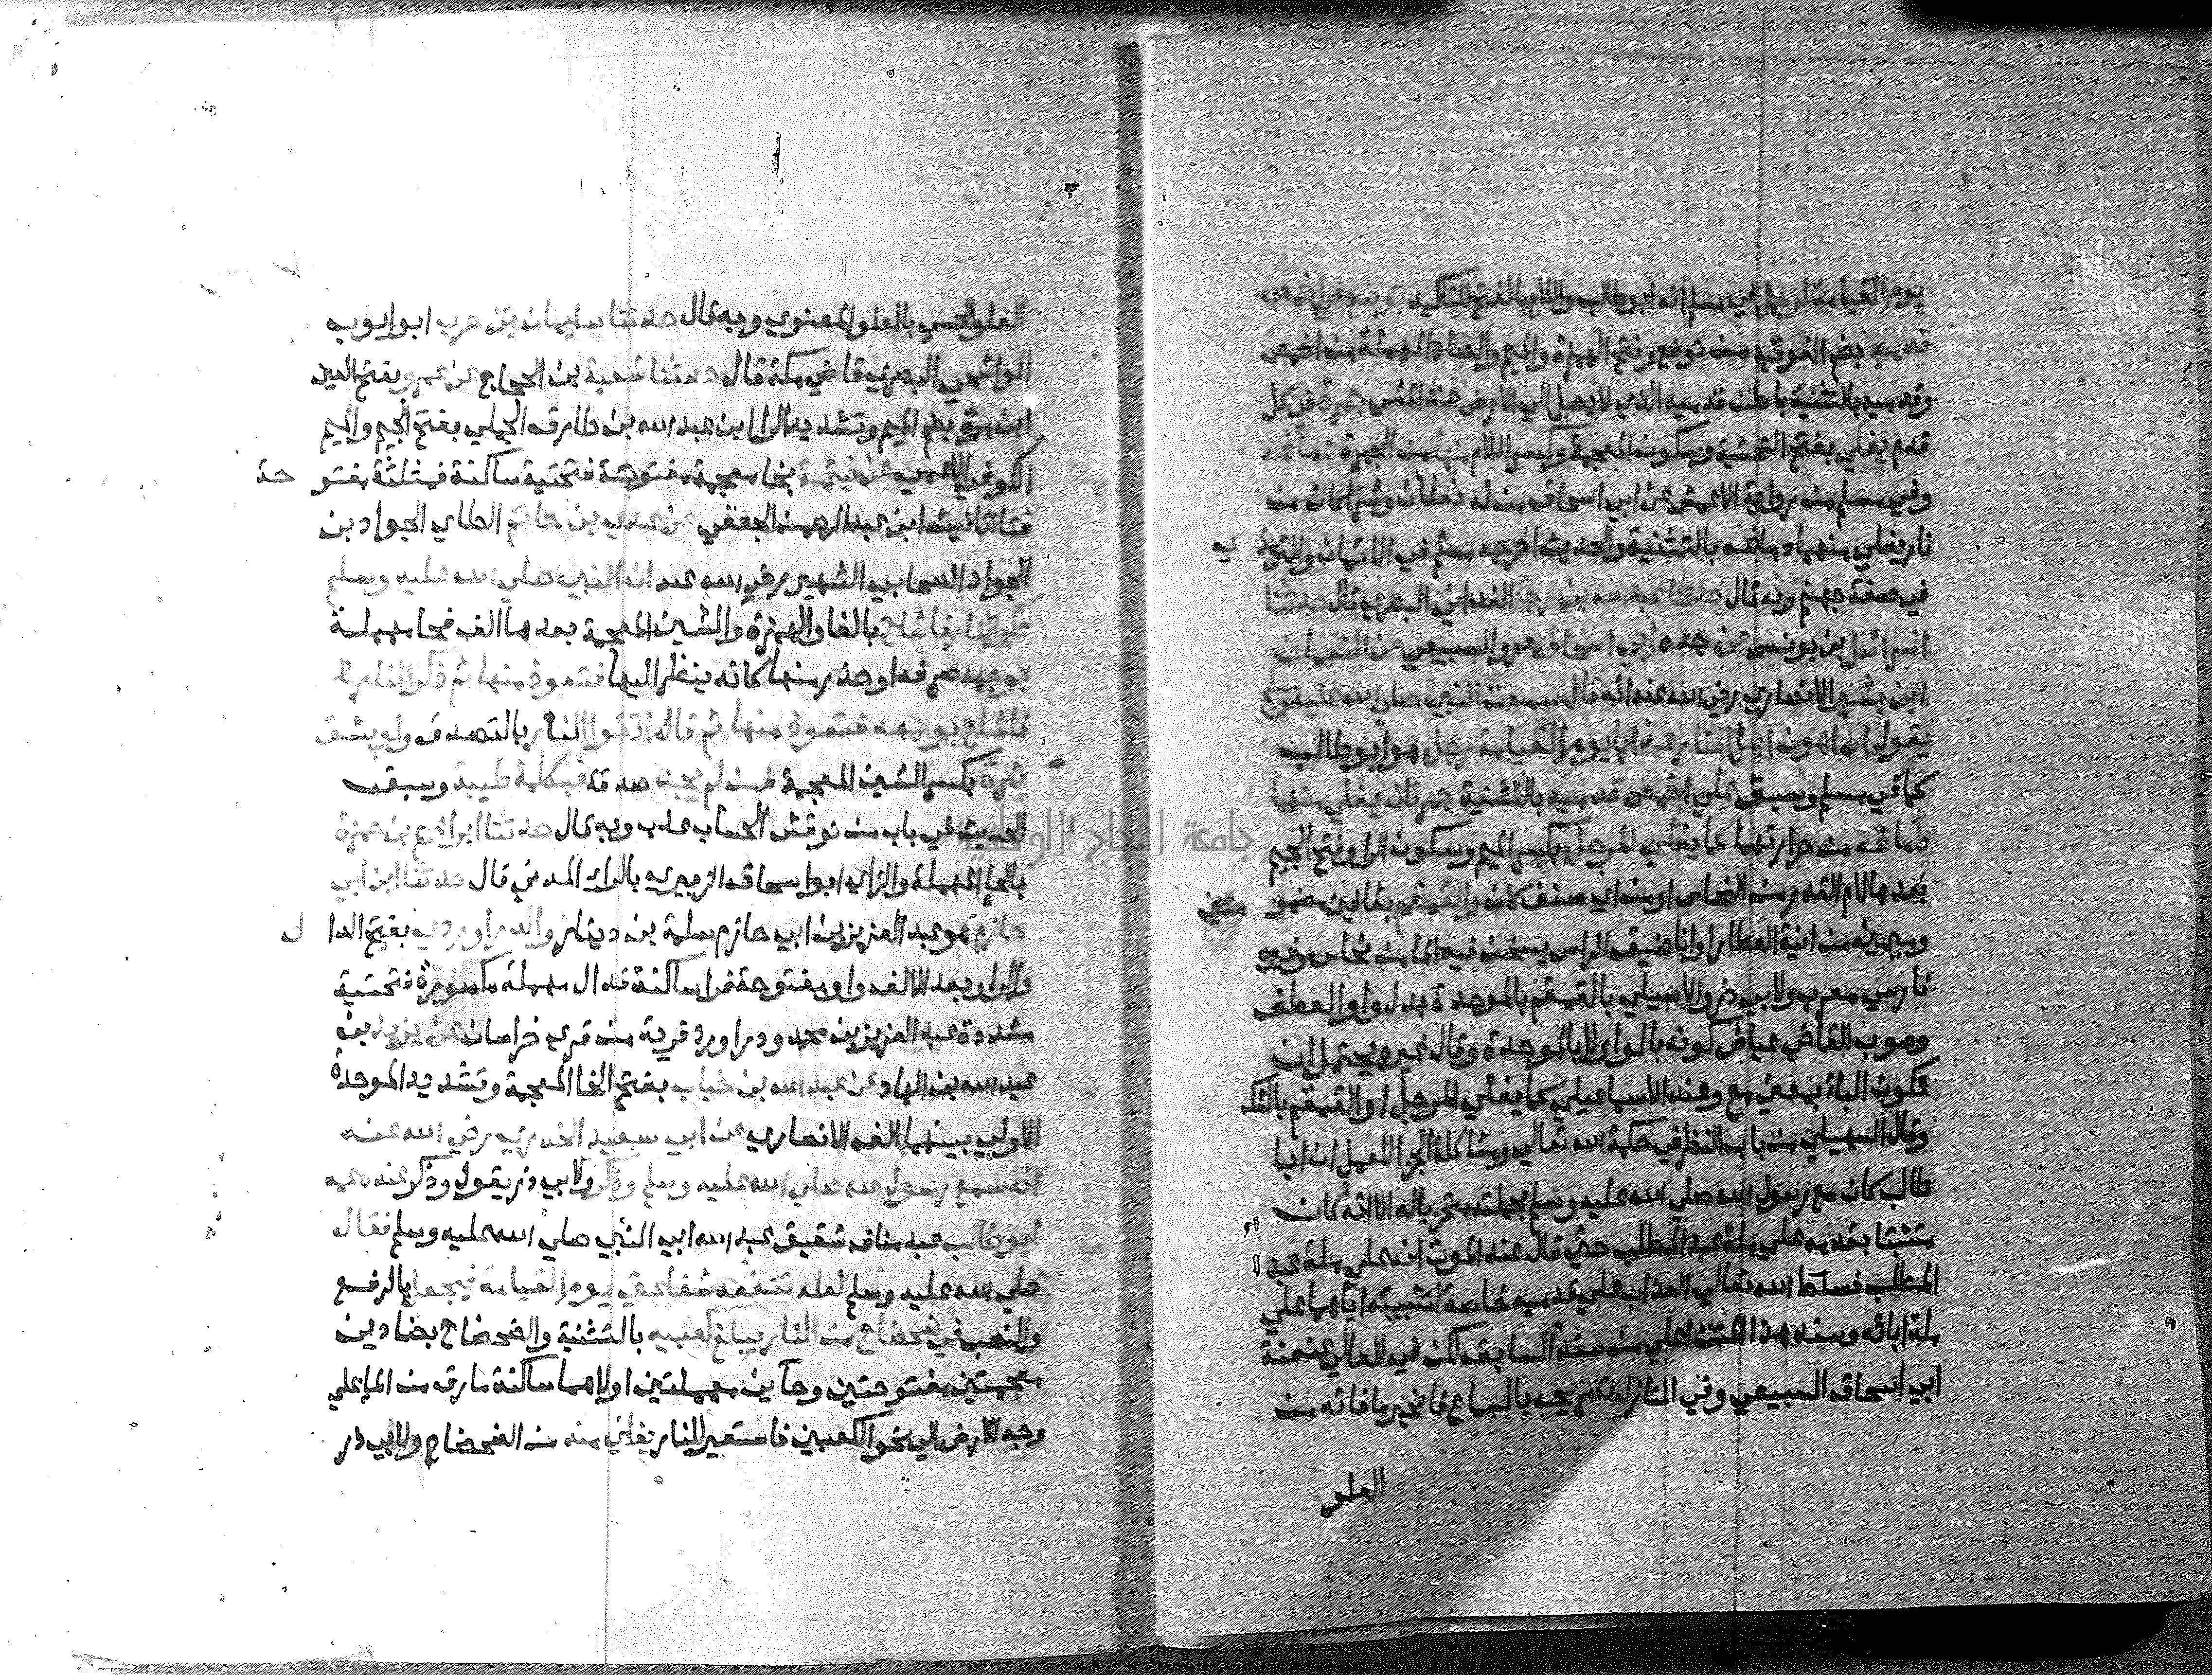 يوم القيامة لرجل في مسلم انه ابو طالب واللام بالفتح للتاكيد توضع في اخمص
قدميه بضم الفوقية من توضع وفتح الهمزة والميم والصاد المهملة من اخمص
وقدميه بالتثنية باطن قدميه الذي لا يصل الي الارض عند المشي جمرة في كل
قدم يغلي بفتح التحتية وسكون المعجمة وكسر اللام منها من الجمرة دماغه
وفي مسلم من رواية الاعمش عن ابي اسحاق من له نعلان وشراكان من
نار يغلي منهما دماغه بالتثنية والحديث اخرجه مسلم في الايمان والترمذ ي
في صفة جهنم وبه قال حدثنا عبد الله بن رجا الغداني البصري قال حدثنا
اسرائيل بن يونس عن جده ابي اسحاق عمرو السبيعي عن النعمان
ابن بشير الانصاري رضي الله عنه انه قال سمعت النبي صلي الله عليه وسلم
يقول ان اهون اهل النار عذابا يوم القيامة رجل هو ابو طالب
كما في مسلم وسبق علي اخمص قدميه بالتثنية جمرتان يغلي منهما
دماغه من حرارتهما كما يغلي المرجل بكسر الميم وسكون الرا وفتح الجيم
بعدها لام القدر من النحاس او من اي صنف كان والقمقم بقافين مضمو متين
وبميمين من انية العطار او انا ضيق الراس يسخن فيه الما من نحاس وغيره
فارسي معرب ولابي ذر والاصيلي بالقمقم بالموحدة بدل واو العطف
وصوب القاضي عياض كونه بالواو لا بالموحدة وقال غيره يحتمل ان
تكون الباء بمعني مع وعند الاسماعيلي كما يغلي المرجل او القمقم بالشك
وقال السهيلي من باب النظر في حكمة الله تعالي ومشاكلة الجزا للعمل ان ابا
طالب كان مع رسول الله صلي الله عليه وسلم بجملته متحزبا له الا انه كان
متثبتا بقدمه علي ملة عبد المطلب حتي قال عند الموت انه علي ملة عبد
المطلب فسلط الله تعالي العذاب علي قدميه خاصة لتثبيته اياهما علي
ملة ابائه وسند هذا المتن اعلي من سند السابق لكن في العالي عنعنة
ابي اسحاق السبيعي وفي النازل تصريحه بالسماع فانجبر ما فاته من
العلو
العلو الحسي بالعلو المعنوي وبه قال حدثنا سليمان بن حرب ابو ايوب
الواشحي البصري قاضي مكة قال حدثنا شعبة بن الحجاج عن عمرو بفتح العين
ابن مرة بضم الميم وتشديد الرا ابن عبد الله بن طارق الجملي بفتح الجيم والميم
الكوفي الاعمي عن خيثمة بخا معجمة مفتوحة فتحتية ساكنة فمثلثة مفتو حة
فتا تانيث ابن عبد الرحمن الجعفي عن عدي بن حاتم الطاي الجواد بن
الجواد الصحابي الشهير رضي الله عنه ان النبي صلي الله عليه وسلم
ذكر النار فاشاح بالفا والهمزة والشين المعجمة بعدها الف فحا مهملة
بوجهه صرفه او حذر منها كانه ينظر اليها فتعوذ منها ثم ذكر النار
فاشاح بوجهه فتعوذ منها ثم قال اتقوا النار بالتصدق ولو بشق
تمرة بكسر الشين المعجمة فمن لم يجد صدقة فبكلمة طيبة وسبق
الحديث في باب من نوقش الحساب عذب وبه قال حدثنا ابراهيم بن حمزة
بالحا المهملة والزاي ابو اسحاق الزبيري بالراء المدني قال حدثنا ابن ابي
حازم هو عبد العزيز بن ابي حازم سلمة بن دينار والدراوردي بفتح الدا ل
والرا وبعد الالف واو مفتوحة فرا ساكنة فدال مهملة مكسورة فتحتية
مشددة عبد العزيز بن محمد ودراورد قرية من قري خراسان عن يزيد بن
عبد الله بن الهاد عن عبد الله بن خباب بفتح الخا المعجمة وتشديد الموحدة
الاولي بينهما الف الانصاري عن ابي سعيد الخدري رضي الله عنه
انه سمع رسول الله صلي الله عليه وسلم وذكر ولابي ذر يقول وذكر عنده عمه
ابو طالب عبد مناف شقيق عبد الله ابي النبي صلي الله عليه وسلم فقال
صلي الله عليه وسلم لعله تنفعه شفاعتي يوم القيامة فيجعل بالرفع
والنصب في ضحضاح من النار يبلغ كعبيه بالتثنية والضحضاح بضادين
معجمتين مفتوحتين وحآين مهملتين اولاهما ساكنة ما رق من الما علي
وجه الارض الي نحو الكعبين فاستعير للنار يغلي منه من الضحضاح ولابي ذر
جامعة النجاح الوطنية